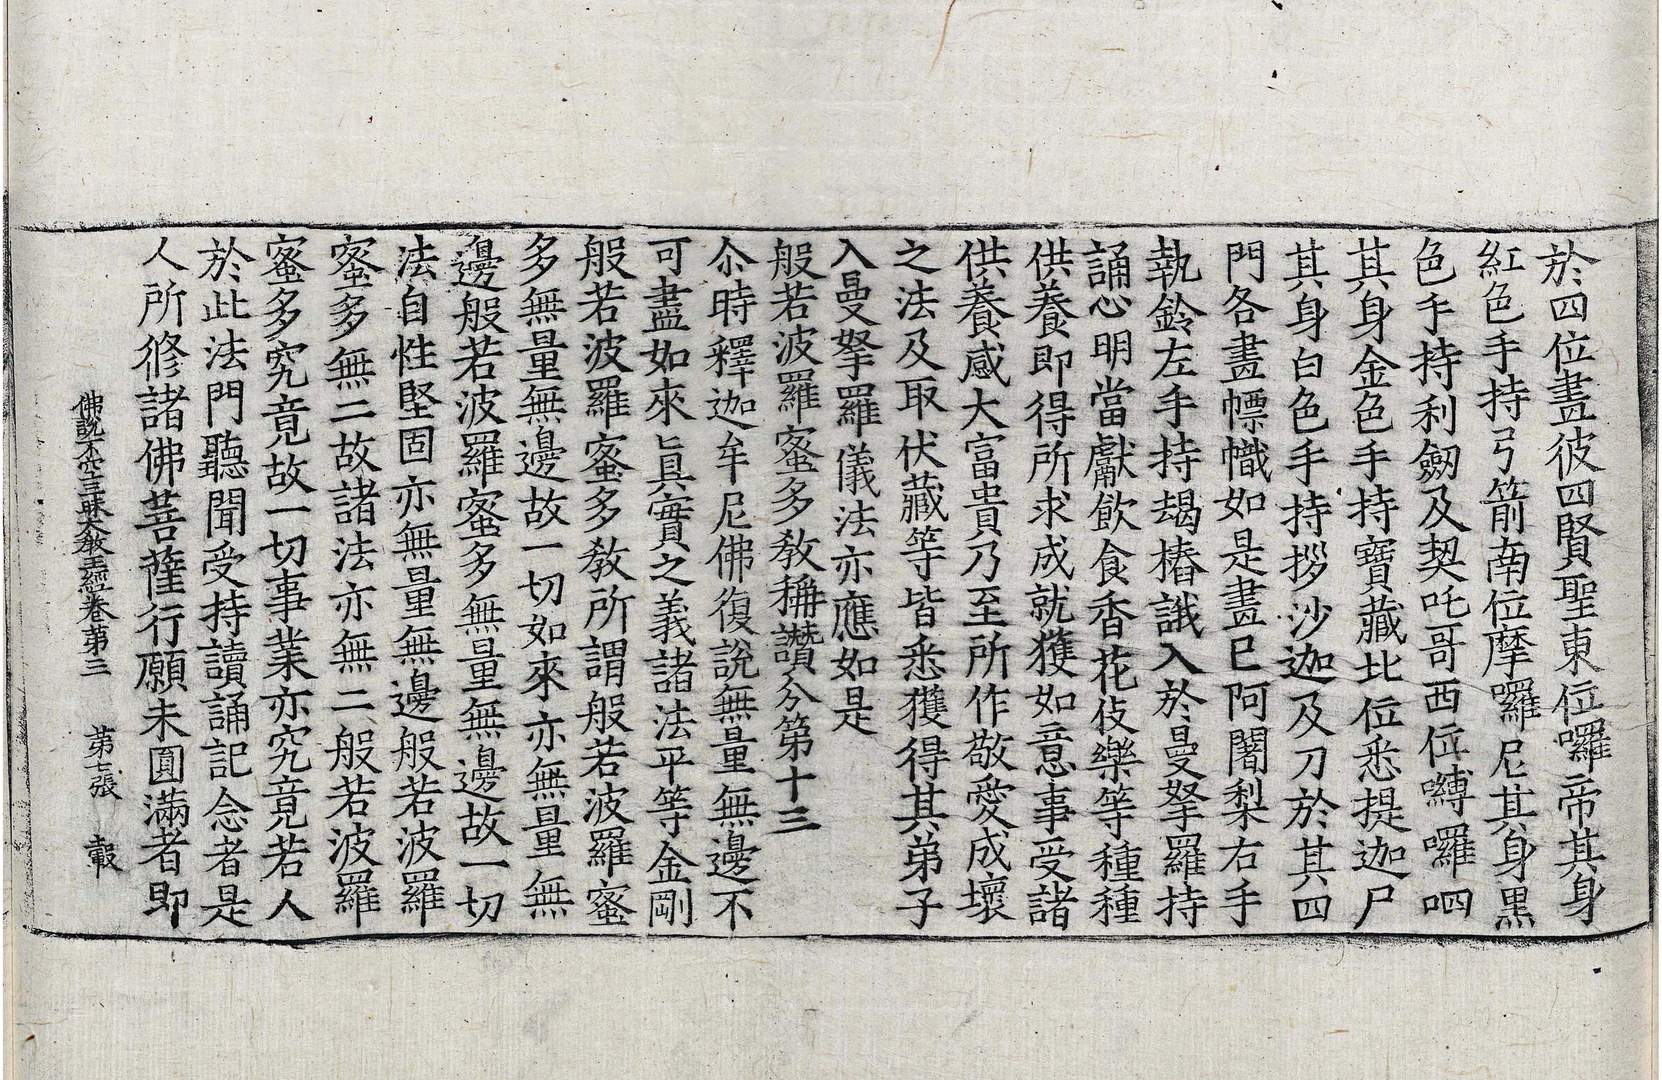 於四位畫彼四賢聖東位囉帝其身
紅色手持弓箭南位摩囉尼其身黑
色手持利劔及契吒哥西位嚩囉呬
其身金色手持寶藏北位悉提迦尸
其身白色手持拶沙迦及刀於其四
門各畫幖幟如是畫已阿闍梨右手
執鈴左手持朅樁誐入於曼拏羅持
誦心明當獻飲食香花伎樂等種種
供養即得所求成就獲如意事受諸
供養感大富貴乃至所作敬愛成壞
之法及取伏藏等皆悉獲得其弟子
入曼拏羅儀法亦應如是
般若波羅蜜多教稱讚分第十三
尒時釋迦牟尼佛復說無量無邊不
可盡如來眞實之義諸法平等金剛
般若波羅蜜多教所謂般若波羅蜜
多無量無邊故一切如來亦無量無
邊般若波羅蜜多無量無邊故一切
法自性堅固亦無量無邊般若波羅
蜜多無二故諸法亦無二般若波羅
蜜多究竟故一切事業亦究竟若人
於此法門聽聞受持讀誦記念者是
人所修諸佛菩薩行願未圓滿者即
佛說不空三昧大教王經卷第三 第七張